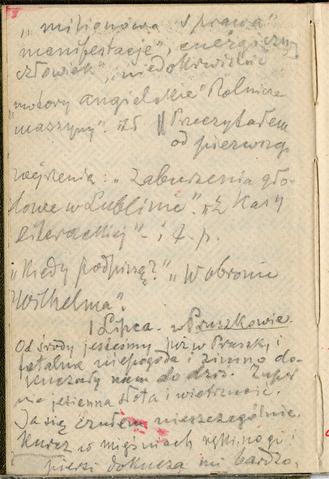 „milionowa sprawa"
manifestacje", „energiczny
człowiek", „niedokrwistość
„motory angielskie" Rolnicze
maszyny".
Przeczytałem
od pierwszego
wejrzenia: „Zaburzenia
w Lublinie". „z Kasy
Literackiej" - i t. p.
„Kiedy podpiszą?" „W obronie
Wilhelma".
1 Lipca. w Pruszkowie.
Od środy jesteśmy już w Pruszk i
fatalna niepogoda i zimno do-
nam do dziś.
jesienna słota i
Ja się czułem nieszczególnie.
Kurcz w mięśniach ręki, nogi i
piersi dokucza mi bardzo.